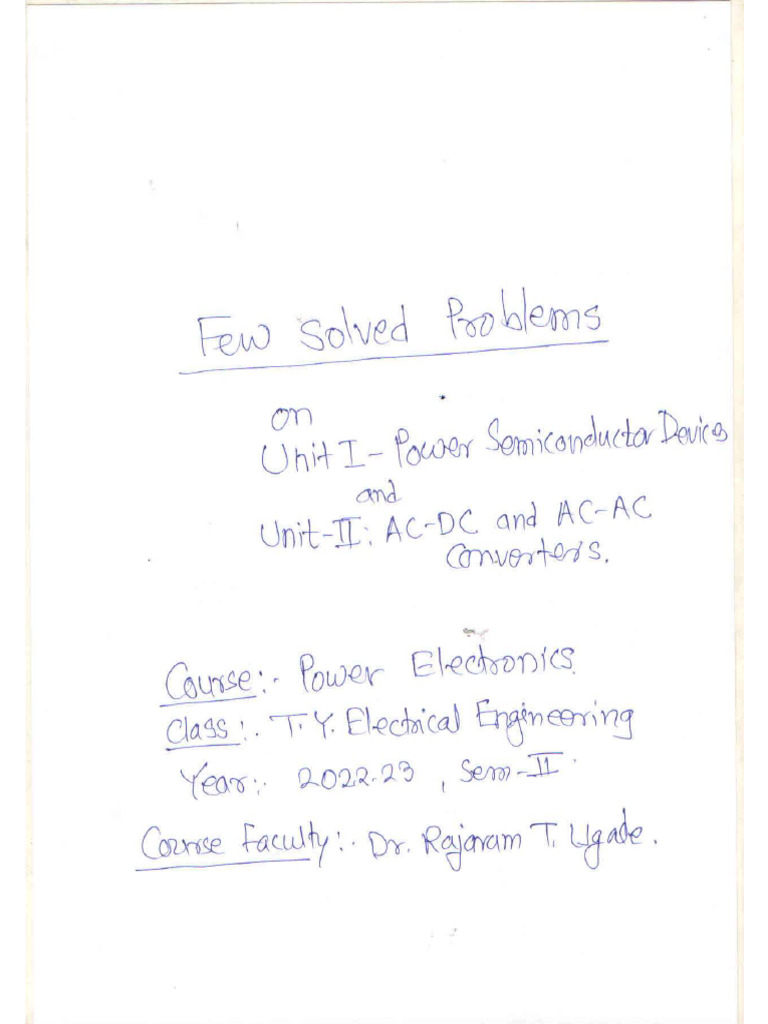 Few Solved Problems
on
Unit I - Power Semiconductor Devices
and
Unit-II: AC-DC and AC-AC
Converters.
Course:- Power Electronics.
Class:- T.Y. Electrical Engineering
Year:- 2022-23, Sem-II
Course Faculty:- Dr. Rajaram T. Ugade.